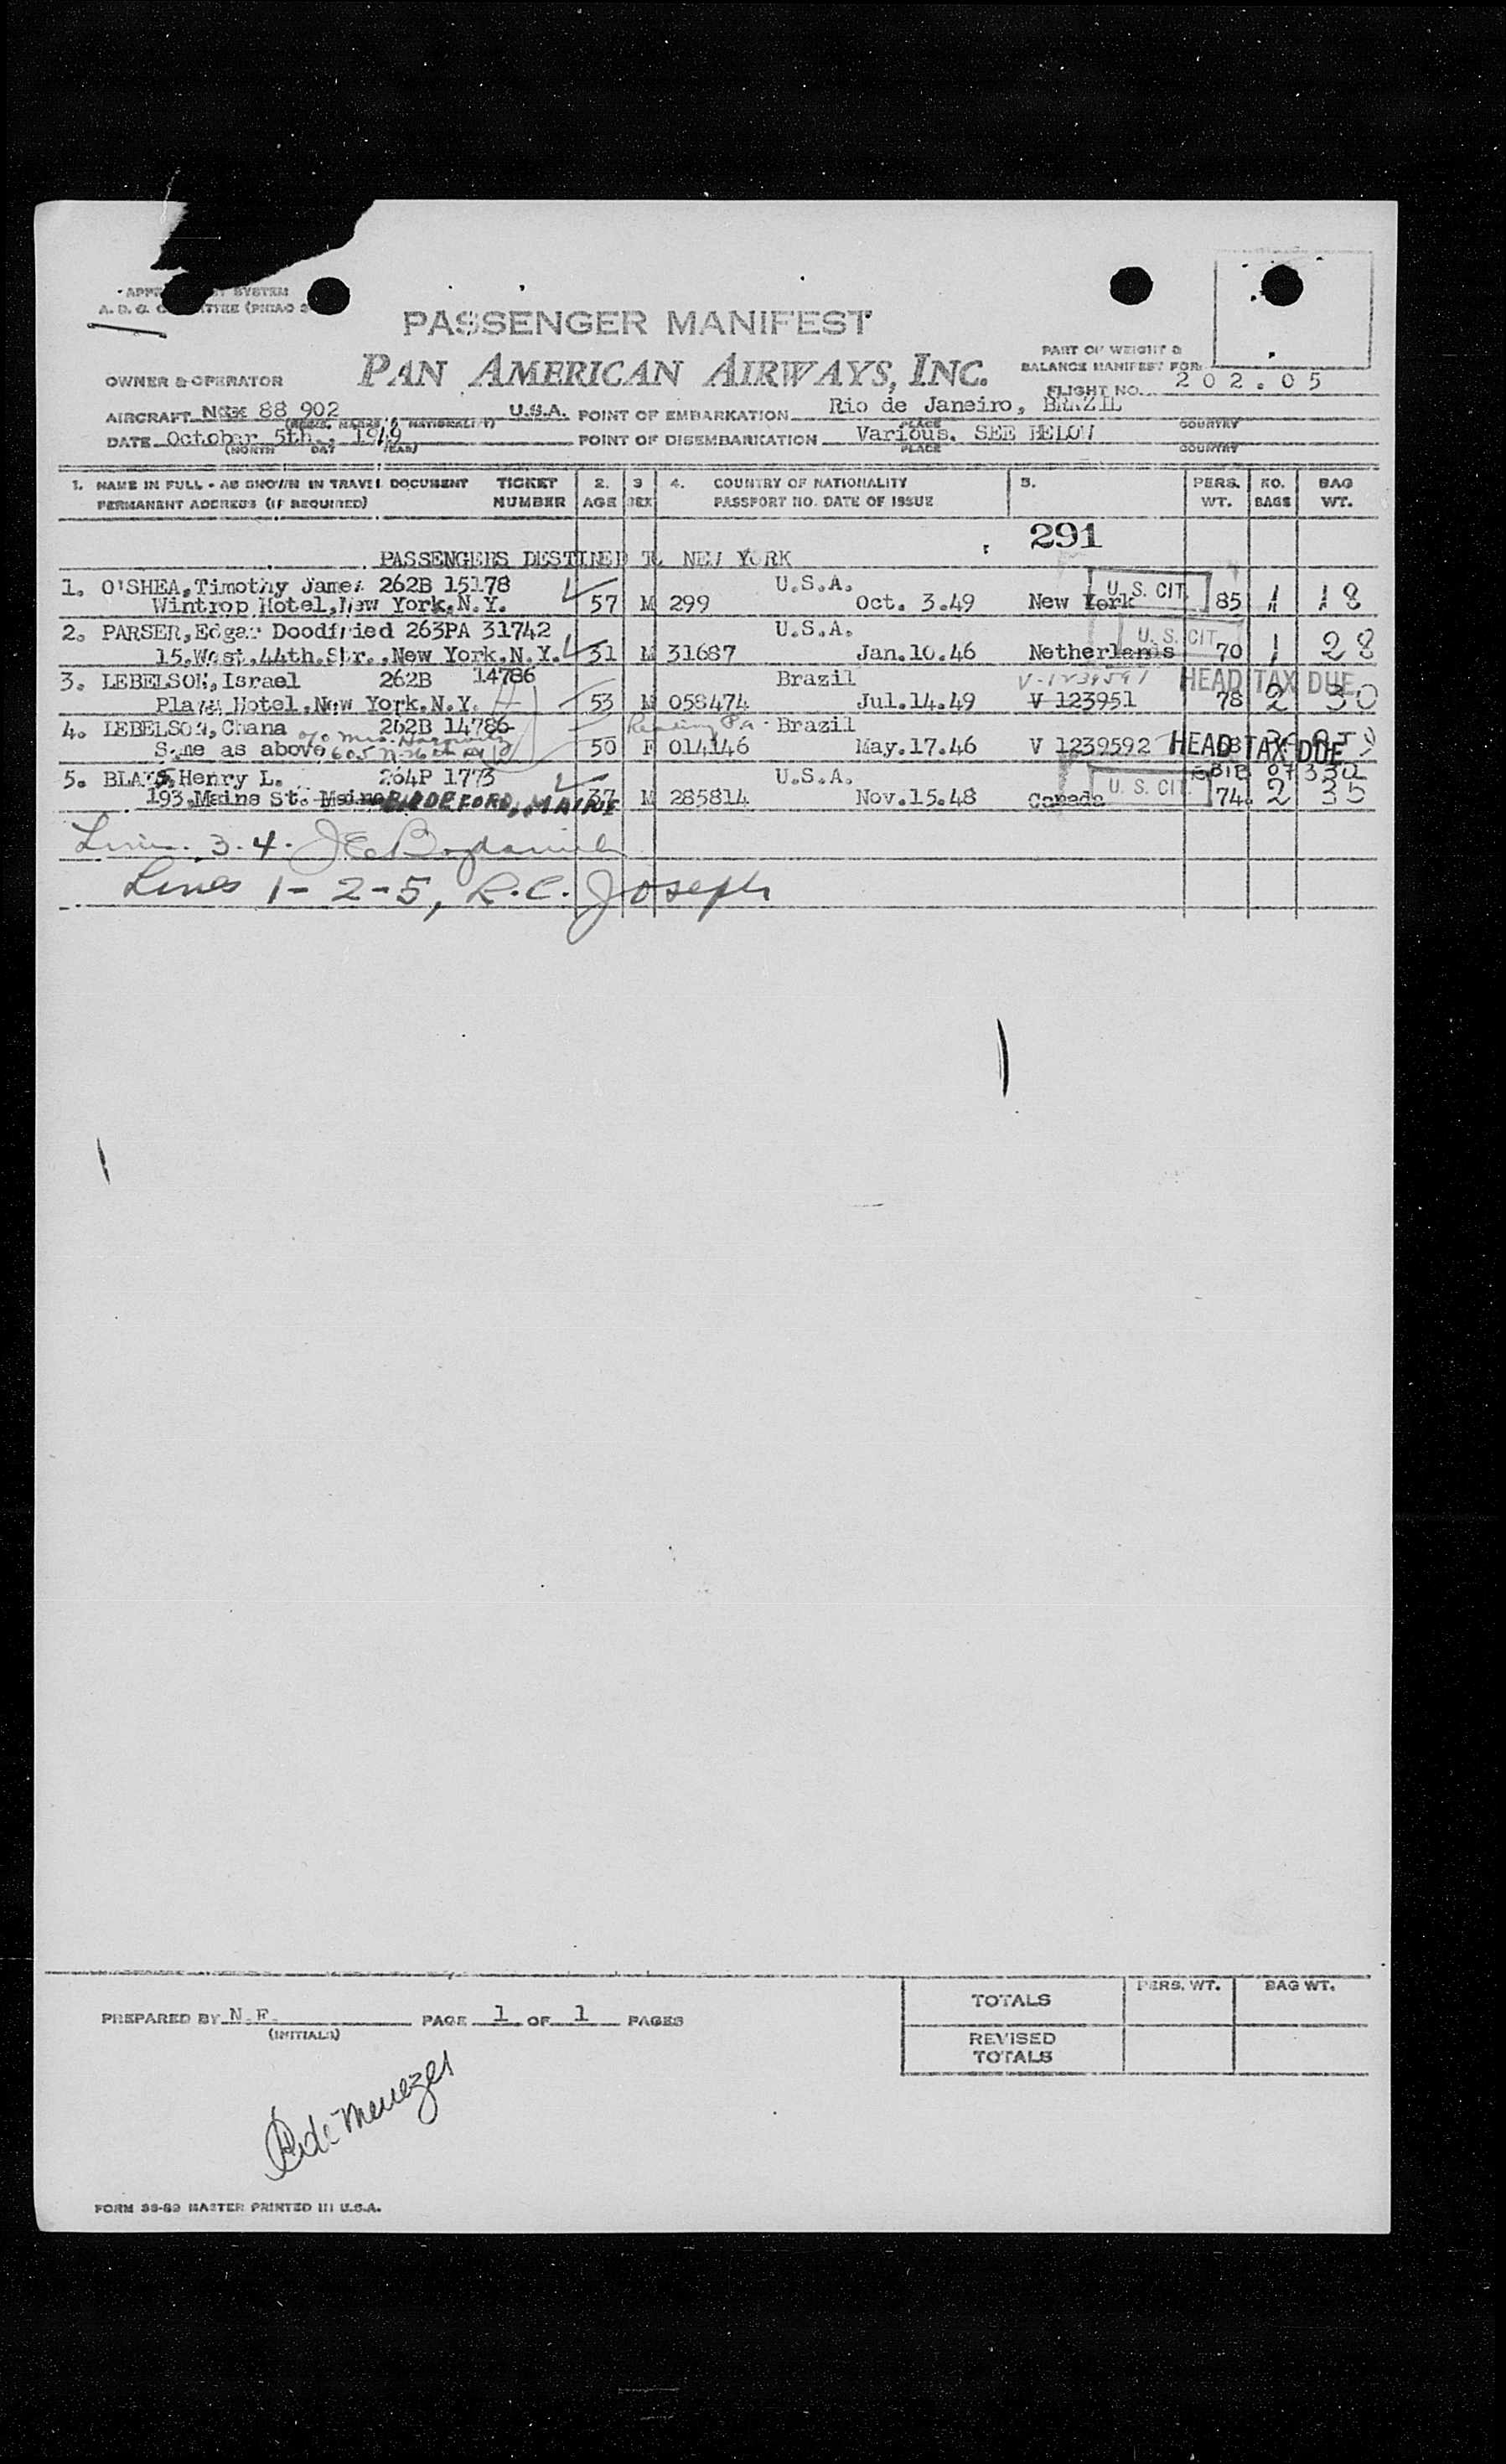 SYSTEM
A. D. C.
PASSENGER MANIFEST
PAN AMERICAN AIRWAYS, INC.
PART OF WEIGHT &
BALANCE MANIFEST FOR
FLIGHT NO. 202.05
OWNER & OPERATOR
AIRCRAFT 88 902 U.S.A. POINT OF EMBARKATION Rio de Janeiro, BRAZIL
(REGIS. MARKS & NATIONALITY) PLACE COUNTRY
DATE October 5th., 1949 POINT OF DISEMBARKATION Various. SEE BELOW
(MONTH DAY YEAR) PLACE COUNTRY
1. NAME IN FULL - AS SHOWN IN TRAVEL DOCUMENT TICKET 2. 3 4. COUNTRY OF NATIONALITY 5. PERS. NO. BAG
PERMANENT ADDRESS (IF REQUIRED) NUMBER AGE SEX PASSPORT NO. DATE OF ISSUE WT. BAGS WT.
291
PASSENGERS DESTINED TO NEW YORK
1. O'SHEA, Timothy James 262B 15178 U.S.A. U. S. CIT.
Wintrop Hotel, New York, N.Y. 57 M 299 Oct. 3.49 New York 85 1 18
2. PARSER, Edgar Doodfried 263PA 31742 U.S.A. U. S. CIT.
15, West, 44th. Str., New York, N.Y. 31 M 31687 Jan.10.46 Netherlands 70 1 28
3. LEBELSON, Israel 262B 14786 Brazil V-1239591 HEAD TAX DUE
Plaza Hotel, New York, N.Y. 53 M 058474 Jul.14.49 V 123951 78 2 30
4. LEBELSON, Chana 262B 14786 c/o Mrs. Reading Pa. Brazil
Same as above 605 N. 50 F 014146 May.17.46 V 1239592 HEAD TAX DUE
5. Henry L. 264P 1773 U.S.A. U. S. CIT.
193, Maine St. Maine BIDDEFORD, MAINE 37 M 285814 Nov.15.48 Canada 74 2 35
3-4.
Lines 1-2-5, R.C. Joseph
TOTALS PERS. WT. BAG WT.
PREPARED BY N.F. PAGE 1 OF 1 PAGES
(INITIALS)
REVISED
TOTALS
de Menezes
MASTER PRINTED IN U.S.A.